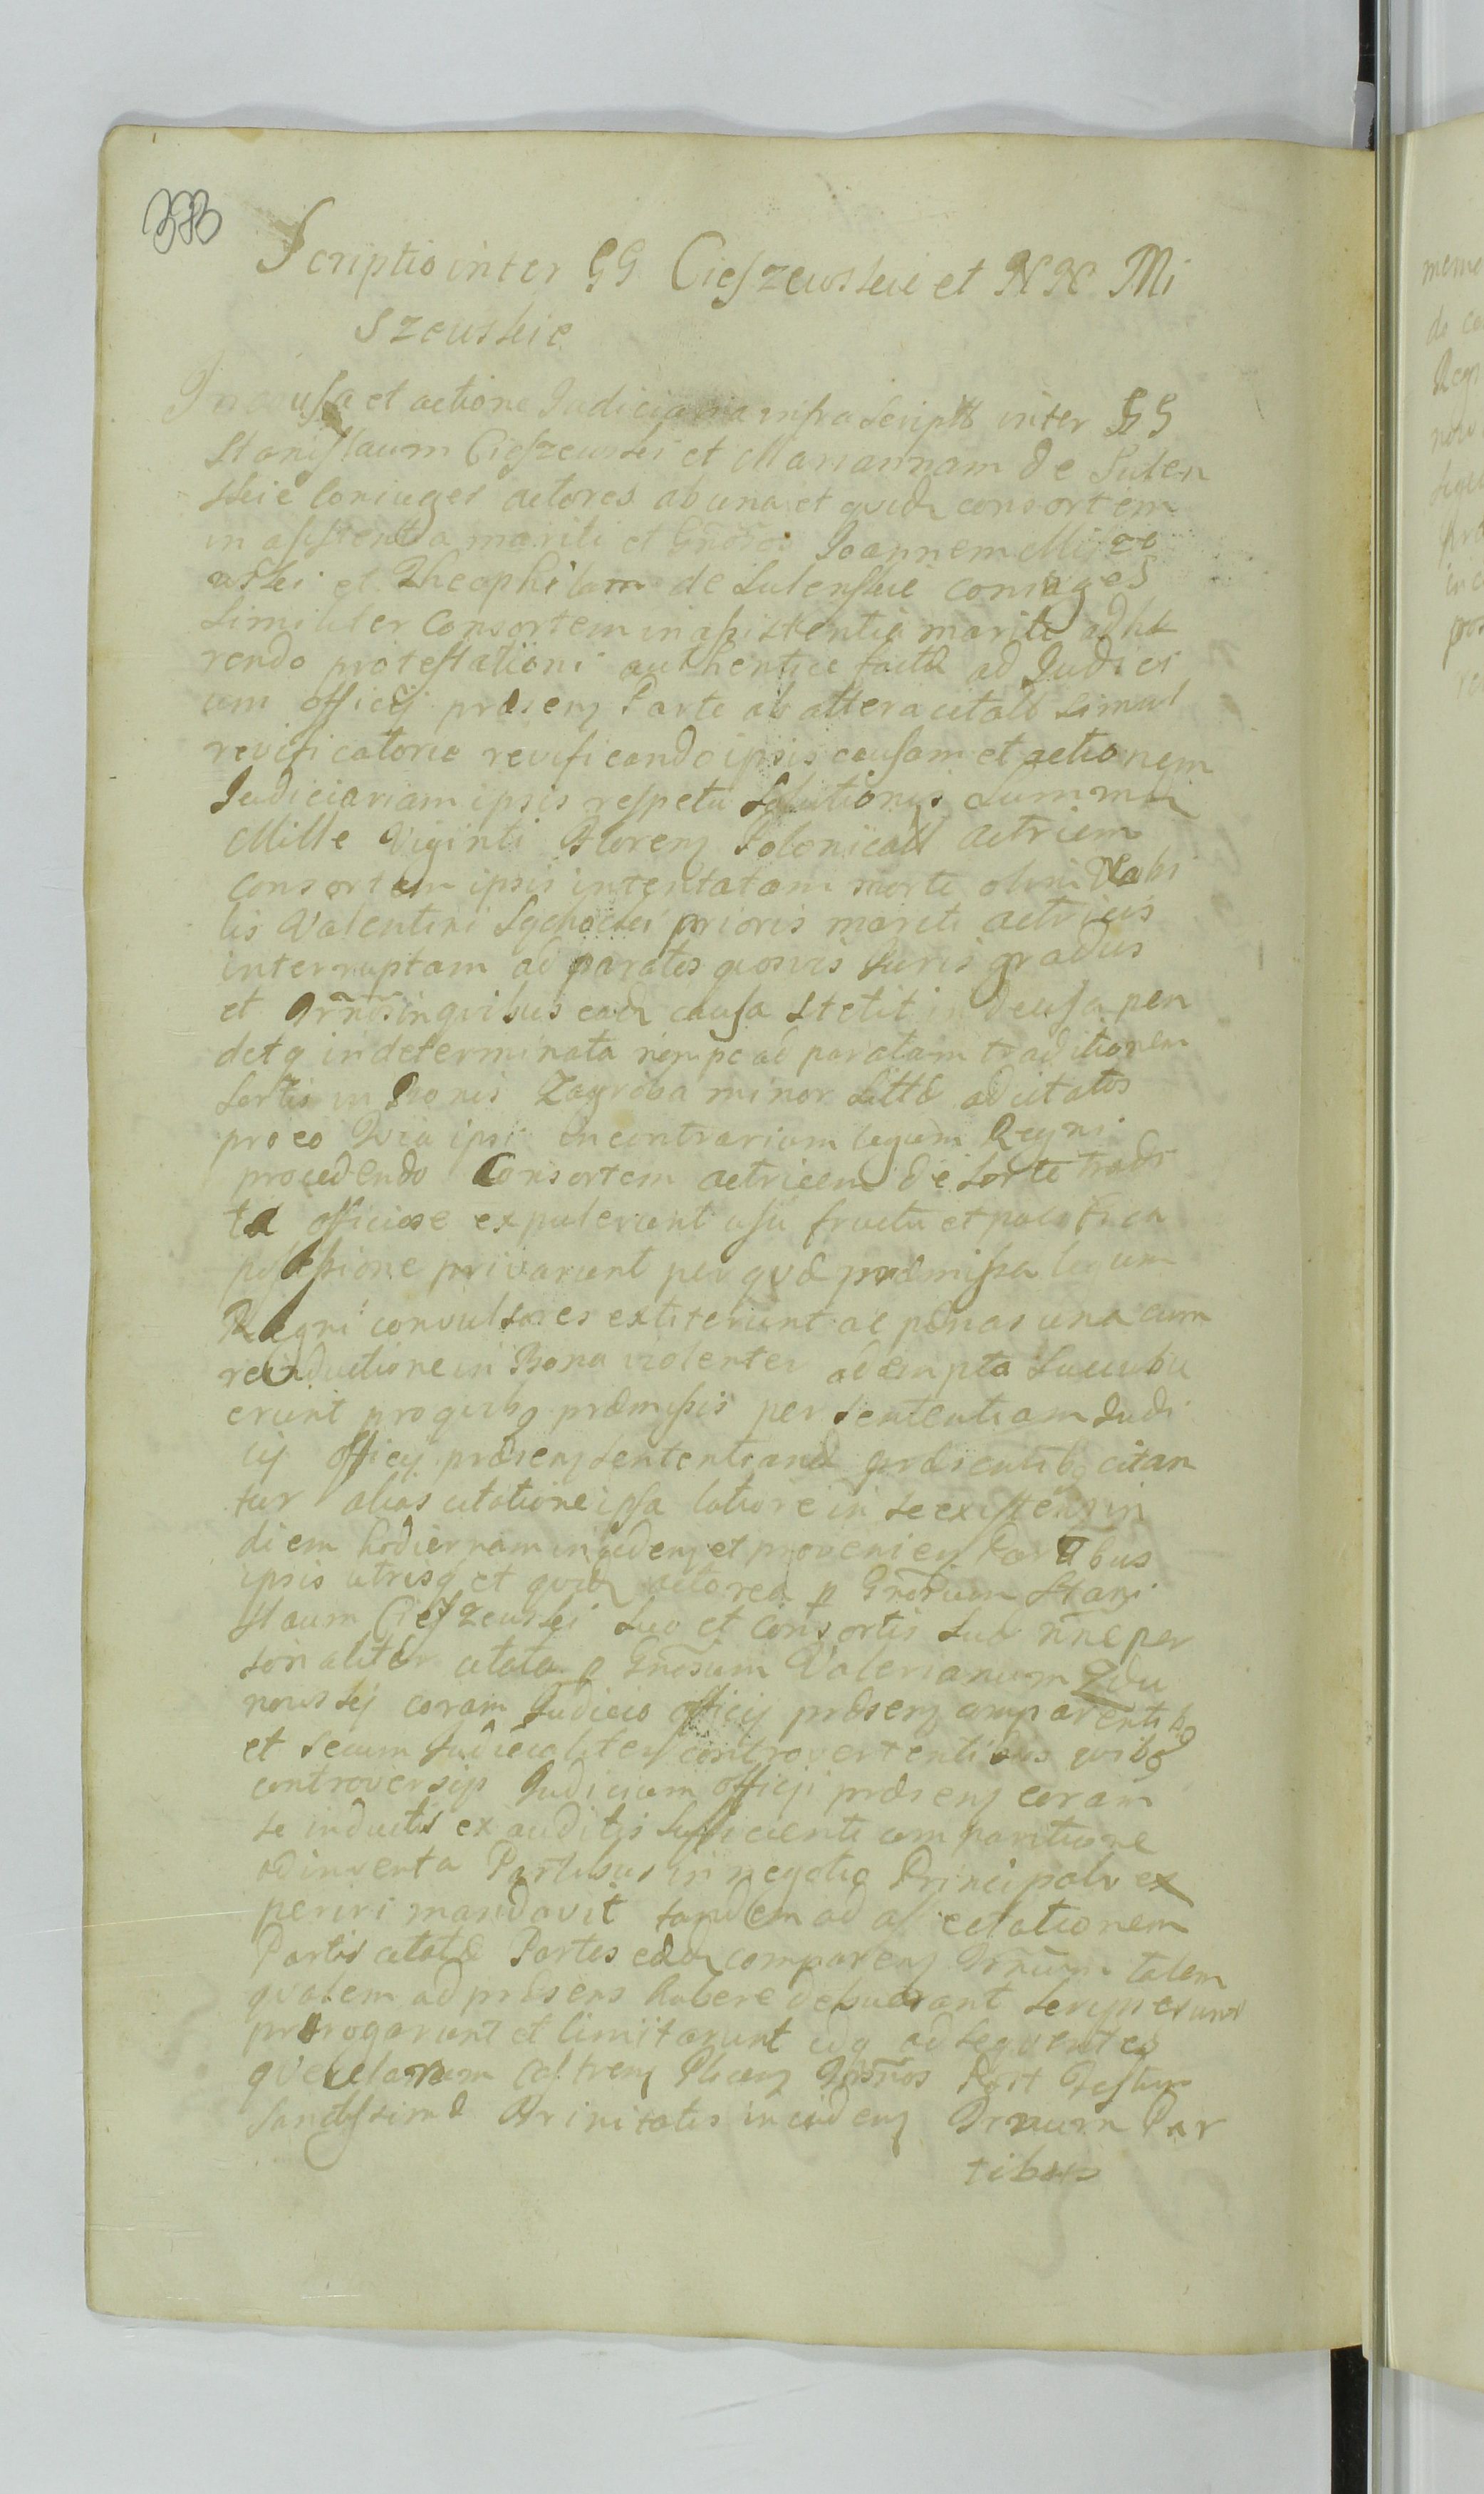 373
Scriptio inter GG Cieszewskie et NN Mi
szewskie
In causa et actione Judiciaria infra scripta inter GG
Stanislaum Cieszewski et Mariannam de Sulen
skie coniuges actores ab una et quidem consortem
in asistentia mariti et Gnosos Joannem Misze
wski et Theophilam de Sulenskie coniuges
similiter Consortem in assistentia mariti adhæ
rendo protestationi authentice factæ ad Judici
um officij præsens Parte ab altera citatos simul
revificatorie revificando ipsis causam et actionem
Judiciariam ipsis respectu solutionis summæ
Mille Viginti Florenj Polonicall actricem
Consortem ipsis intentatam morte olim Nobi
lis Valentini prioris mariti actricis
interruptam ad paratos quosvis Juris gradus
et Trnos in quibus eadem causa stetit indecisa pen
detq indeterminata nempe ad paratam traditionem
sortis in Bonis Zagroba minor sittæ ad citatos
pro eo Quia ipsi in contrarium legum Regni
procedendo Consortem actricem de sorte tradi
ta officiose expulerunt usu fructu et pacifica
possessione privarunt per quæ præmissa legum
Regni convulsores extiterunt ac pænas una cum
reinductione in Bona violenter adempta succubu
erunt pro quibq præmissis per sententiam Judi
cij officij præsenj sententiandæ citan
tur alias citatione ipsa latiore in se existenj in
diem hodiernam incidenj et provenienj Partibus
ipsis utrisq et quidem actorea p Gnosum Stani
slaum Cieszewski suo et Consortis suæ nne per
sonaliter citata p Gnosum Valerianum Zdu
nowskj coram Judicio officij præsenj comparentibq
et secum Judicialiter controvertentibus quibq
controversijs Judicium officji præsenj coram
se inductis exauditis sufficienti comparitione
adinventa Partibus in negotio Principali ex
periri mandavit tandem ad af citationem
Partis citatæ Partes eædem comparenj Trnum talem
qualem ad præsens habere debuerant scripserunt
prorogarunt et limitarunt idq ad sequentes
querelarum Castrenj Plocenj Trnos Post Festum
Sanctissimæ Trinitatis incidenj Trnum Par
tibus